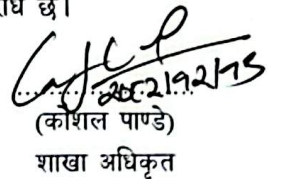 छ।
२०८२।१२।१५
(कौशल पाण्डे)
शाखा अधिकृत